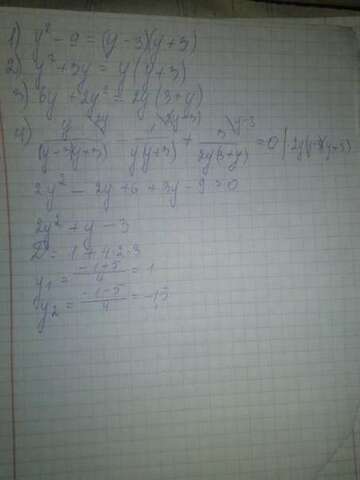 1) y² - 9 = (y - 3)(y + 3)
2) y² + 3y = y(y + 3)
3) 6y + 2y² = 2y(3 + y)
4) y/((y - 3)(y + 3)) - 1/(y(y + 3)) + 3/(2y(3 + y)) = 0 | 2y(y - 3)(y + 3)
2y² - 2y + 6 + 3y - 9 = 0
2y² + y - 3
D = 1 + 4·2·3
y₁ = (-1 + 5)/4 = 1
y₂ = (-1 - 5)/4 = -1,5